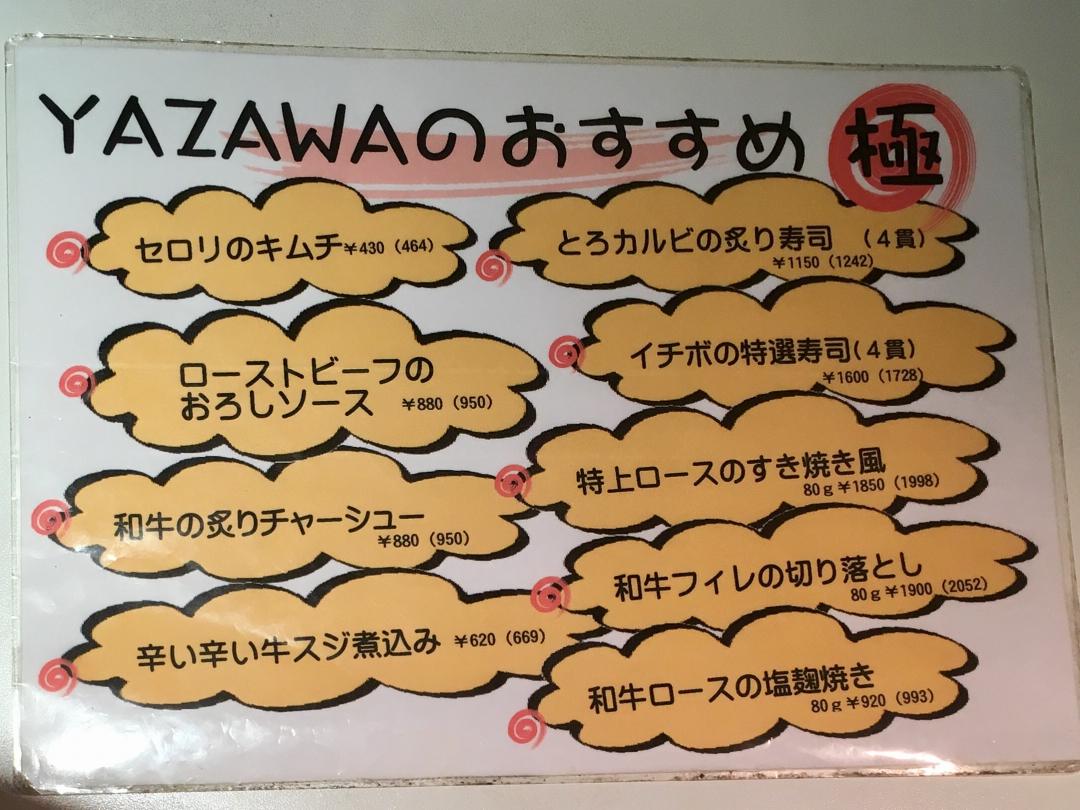 YAZAWAのおすすめ 極
セロリのキムチ¥430（464）
ローストビーフの
おろしソース ¥880（950）
和牛の炙りチャーシュー
¥880（950）
辛い辛い牛スジ煮込み ¥620（669）
とろカルビの炙り寿司 （４貫）
¥1150（1242）
イチボの特選寿司（４貫）
¥1600（1728）
特上ロースのすき焼き風
80ｇ¥1850（1998）
和牛フィレの切り落とし
80ｇ¥1900（2052）
和牛ロースの塩麹焼き
80ｇ¥920（993）